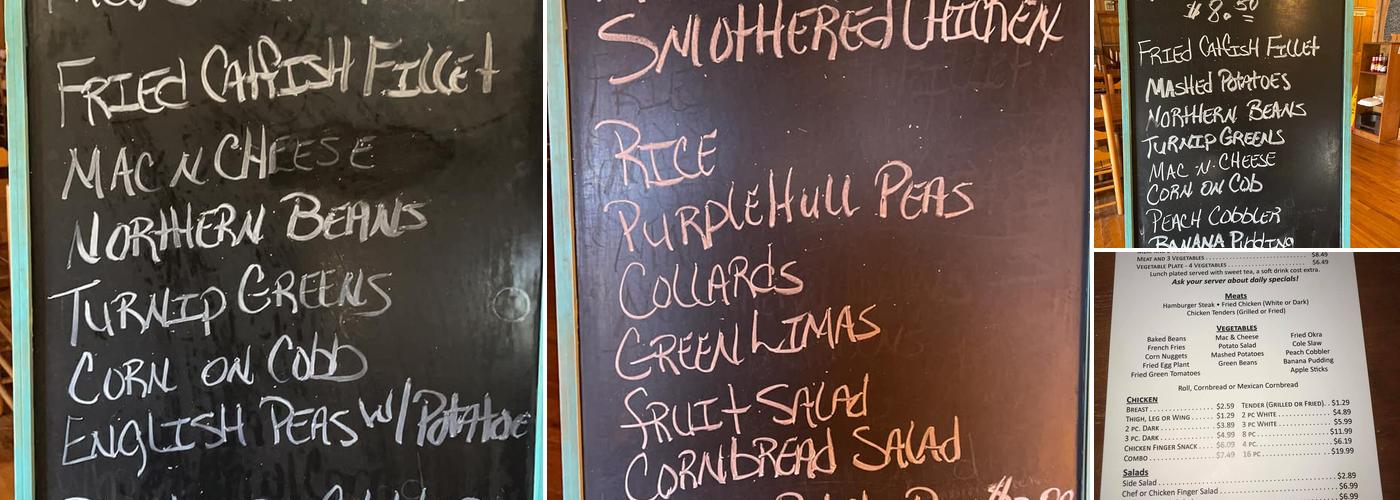 FRIED CATFISH FILLET
MAC N CHEESE
NORTHERN BEANS
TURNIP GREENS
CORN ON COBB
ENGLISH PEAS W/ POTATOE
SMOTHERED CHICKEN
RICE
PURPLEHULL PEAS
COLLARDS
GREEN LIMAS
FRUIT SALAD
CORNBREAD SALAD
$8.50
FRIED CATFISH FILLET
MASHED POTATOES
NORTHERN BEANS
TURNIP GREENS
MAC N CHEESE
CORN ON COB
PEACH COBBLER
BANANA PUDDING
MEAT AND 3 VEGETABLES $8.49
VEGETABLE PLATE - 4 VEGETABLES $6.49
Lunch plated served with sweet tea, a soft drink cost extra.
Ask your server about daily specials!
Meats
Hamburger Steak • Fried Chicken (White or Dark)
Chicken Tenders (Grilled or Fried)
VEGETABLES
Baked Beans
French Fries
Corn Nuggets
Fried Egg Plant
Fried Green Tomatoes
Mac & Cheese
Potato Salad
Mashed Potatoes
Green Beans
Fried Okra
Cole Slaw
Peach Cobbler
Banana Pudding
Apple Sticks
Roll, Cornbread or Mexican Cornbread
CHICKEN
BREAST $2.59
THIGH, LEG OR WING $1.29
2 PC. DARK $3.89
3 PC. DARK $4.99
CHICKEN FINGER SNACK $6.09
COMBO $7.49
TENDER (GRILLED OR FRIED) $1.29
2 PC WHITE $4.89
3 PC WHITE $5.99
8 PC $11.99
4 PC $6.19
16 PC $19.99
Salads
Side Salad $2.89
Chef or Chicken Finger Salad $6.99
$6.99